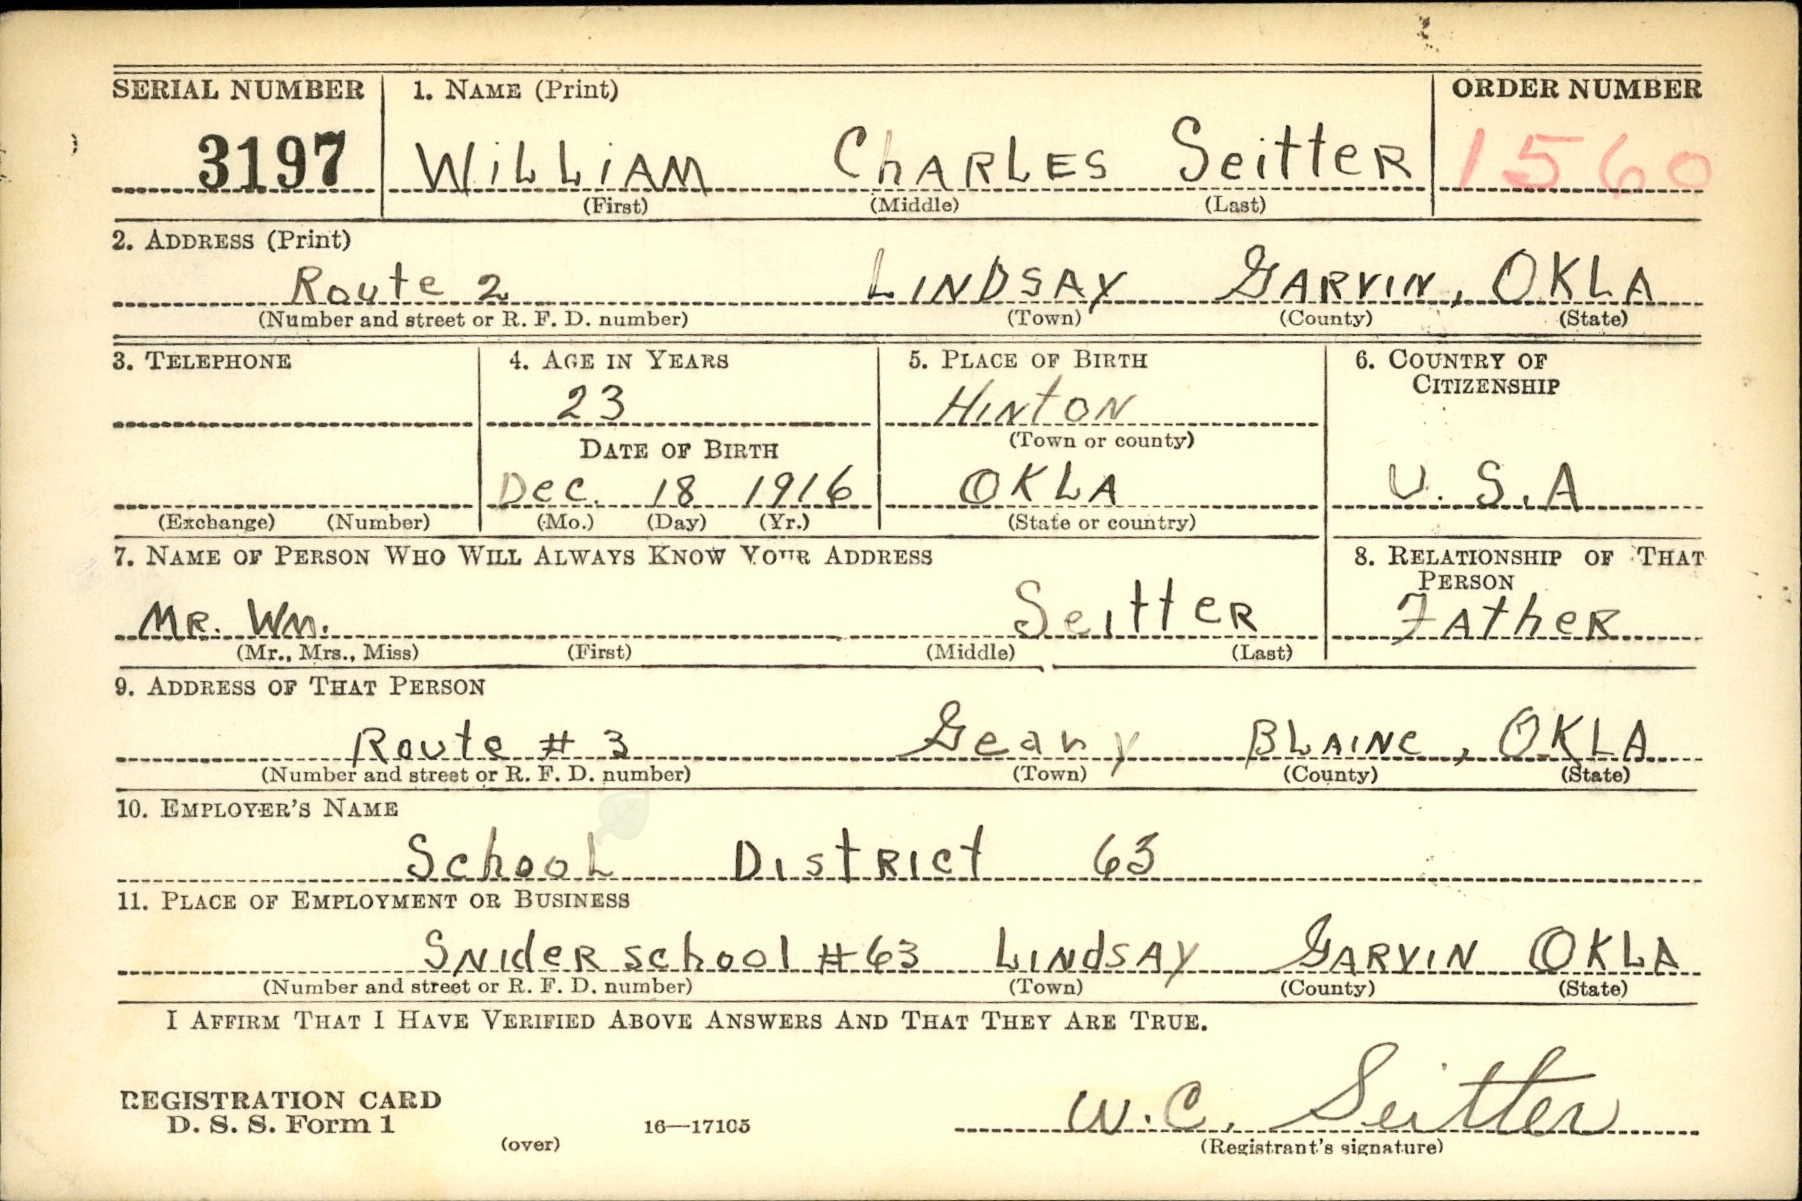 SERIAL NUMBER 1. NAME (Print) ORDER NUMBER
3197 WiLLiAM ChARLES SeitteR 1560
(First) (Middle) (Last)
2. ADDRESS (Print)
Route 2 LINDSAY GARVIN, OKLA
(Number and street or R. F. D. number) (Town) (County) (State)
3. TELEPHONE 4. AGE IN YEARS 5. PLACE OF BIRTH 6. COUNTRY OF
CITIZENSHIP
23 HINtON
DATE OF BIRTH (Town or county)
Dec. 18 1916 OKLA U. S. A
(Exchange) (Number) (Mo.) (Day) (Yr.) (State or country)
7. NAME OF PERSON WHO WILL ALWAYS KNOW YOUR ADDRESS 8. RELATIONSHIP OF THAT
PERSON
MR. WM. SeitteR FAtheR
(Mr., Mrs., Miss) (First) (Middle) (Last)
9. ADDRESS OF THAT PERSON
Route # 3 Geary BLAINe, OKLA
(Number and street or R. F. D. number) (Town) (County) (State)
10. EMPLOYER'S NAME
SchooL DIstRIct 63
11. PLACE OF EMPLOYMENT OR BUSINESS
SNIdeR school #63 LINdSAY GARVIN OKLA
(Number and street or R. F. D. number) (Town) (County) (State)
I AFFIRM THAT I HAVE VERIFIED ABOVE ANSWERS AND THAT THEY ARE TRUE.
REGISTRATION CARD
D. S. S. Form 1 W. C. Seitter
(over) 16—17105 (Registrant's signature)